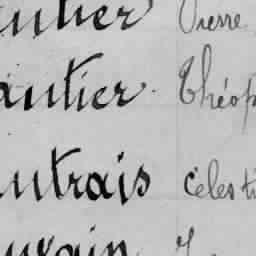 utier Pierre
autier Théop
utrais Célesti
urain